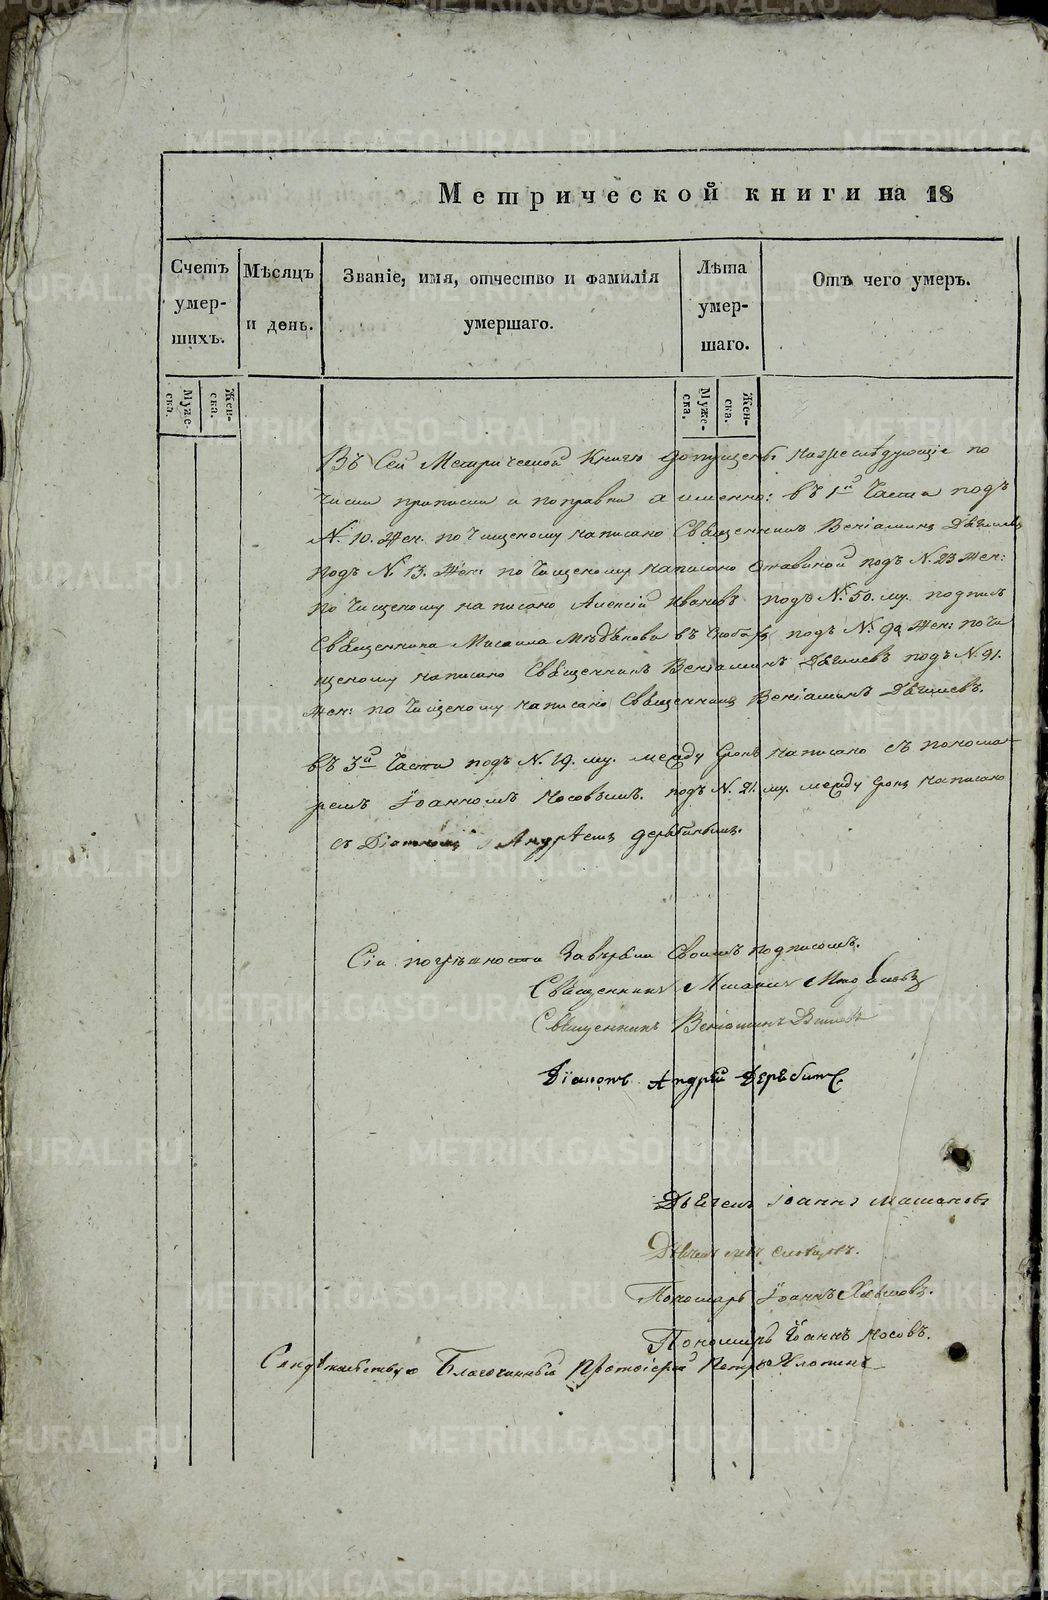 Метрической книги на 18
Счетъ умер-шихъ.
Мѣсяцъ и день.
Званіе, имя, отчество и фамилія умершаго.
Лѣта умер-шаго.
Отъ чего умеръ.
Муже-ска.
Жен-ска.
Муже-ска.
Жен-ска.
Въ Сей Метрической Книгѣ допущены нижеслѣдующіе по
чистки приписки и поправки а именно: въ 1й Части подъ
N. 10. Жен. по чищеному написано Священникъ Веніаминъ
подъ N. 13. Жен: по чищеному написано подъ N. 23 Жен:
по чищеному написано Алексій Ивановъ подъ N. 50. му. подпись
Священника Михаила въ подъ N. 90 Жен: по чи
щеному написано Священникъ Веніаминъ подъ N. 91.
Жен: по чищеному написано Священникъ Веніаминъ
въ 3й Части подъ N. 19. му. между строкъ написано съ понома
ремъ Іоанномъ Носовымъ. подъ N. 21. му. между строкъ написано
съ Діакономъ Андрѣемъ Дерябинымъ.
Сіи погрѣшности завѣряли своимъ подписомъ.
Священникъ Михаилъ
Священникъ Веніаминъ
Діаконъ Андрей Дерябинъ
Дьячекъ Іоаннъ
Дьячекъ
Пономарь Іоаннъ
Пономарь Іоаннъ Носовъ.
Свидѣтельствую Благочинный Протоіерей Петръ Хлопинъ
METRIKI.GASO-URAL.RU